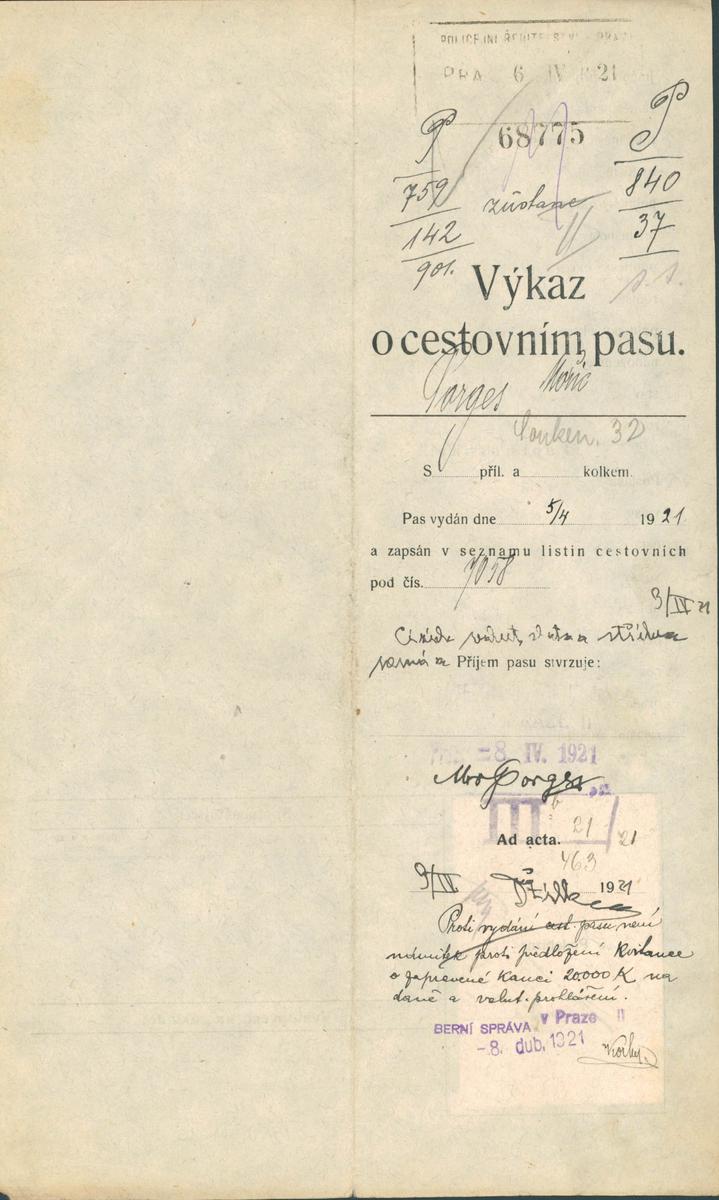 POLICEJNÍ ŘEDITELSTVÍ PRAZE
PRA 6 IV 21
68775
P P
759 zůstane 840
142 37
901.
Výkaz
o cestovním pasu.
Porges Moric
32
S příl. a kolkem.
Pas vydán dne 5/4 1921
a zapsán v seznamu listin cestovních
pod čís. 7058
3/IV 21
valut,
Příjem pasu stvrzuje:
8. IV. 1921
Porges
III
Ad acta. 21/21
463
9/IV. 1921
Proti vydání cest. pasu není
námitek proti předložení kvitance
o zapravené kauci 20.000 K na
daně a valut. prohlášení.
BERNÍ SPRÁVA v Praze II
-8. dub. 1921